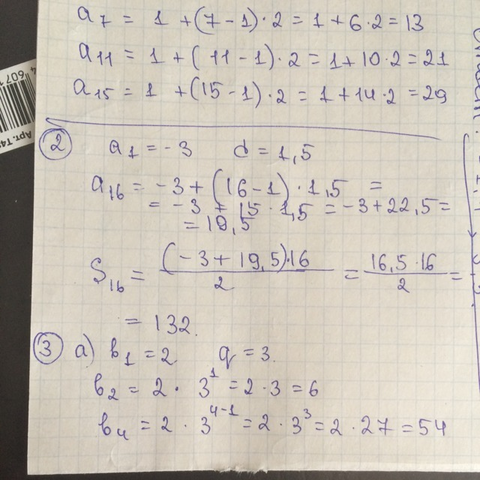 a₇ = 1 + (7 - 1) · 2 = 1 + 6 · 2 = 13
a₁₁ = 1 + (11 - 1) · 2 = 1 + 10 · 2 = 21
a₁₅ = 1 + (15 - 1) · 2 = 1 + 14 · 2 = 29
2 a₁ = -3 d = 1,5
a₁₆ = -3 + (16 - 1) · 1,5 =
= -3 + 15 · 1,5 = -3 + 22,5 =
= 19,5
S₁₆ = (-3 + 19,5) · 16 / 2 = 16,5 · 16 / 2 =
= 132.
3 а) b₁ = 2 q = 3.
b₂ = 2 · 3¹ = 2 · 3 = 6
b₄ = 2 · 3⁴⁻¹ = 2 · 3³ = 2 · 27 = 54